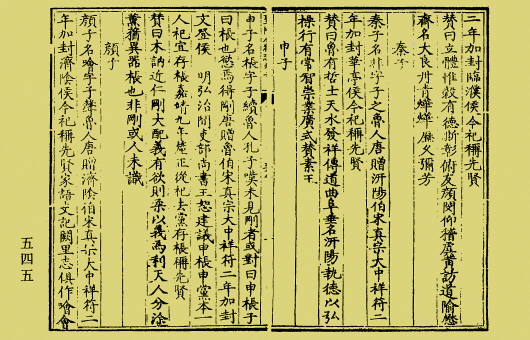 二年加封臨濮侯今祀稱先賢
賛曰立體惟穀有德斯彰俯友顔閔仰稽虞黄訪道喻懋
齊名大良丹青爀爀歴久彌芳
秦子
秦子名非字子之魯人唐贈汧陽伯宋真宗大中祥符二
年加封華亭侯今祀稱先賢
賛曰魯有哲士天水發祥傳道曲阜垂名汧陽執德以弘
操行有常智崇業廣式賛素王
申子
申子名棖字子續魯人孔子嘆未見剛者或對曰申棖子
曰棖也慾焉得剛唐贈魯伯宋真宗大中祥符二年加封
文登侯 明弘治間吏部尚書王恕建議申棖申黨本一
人祀宜存棖嘉靖九年釐正從祀去黨存棖稱先賢
賛曰木訥近仁剛大配義有欲則柔以義為利天人分途
薰蕕異器棖也非剛或人未識
顔子
顔子名噲字子聲魯人唐贈濟陰伯宋真宗大中祥符二
年加封濟陰侯今祀稱先賢家語文記闕里志俱作噲會
五四五